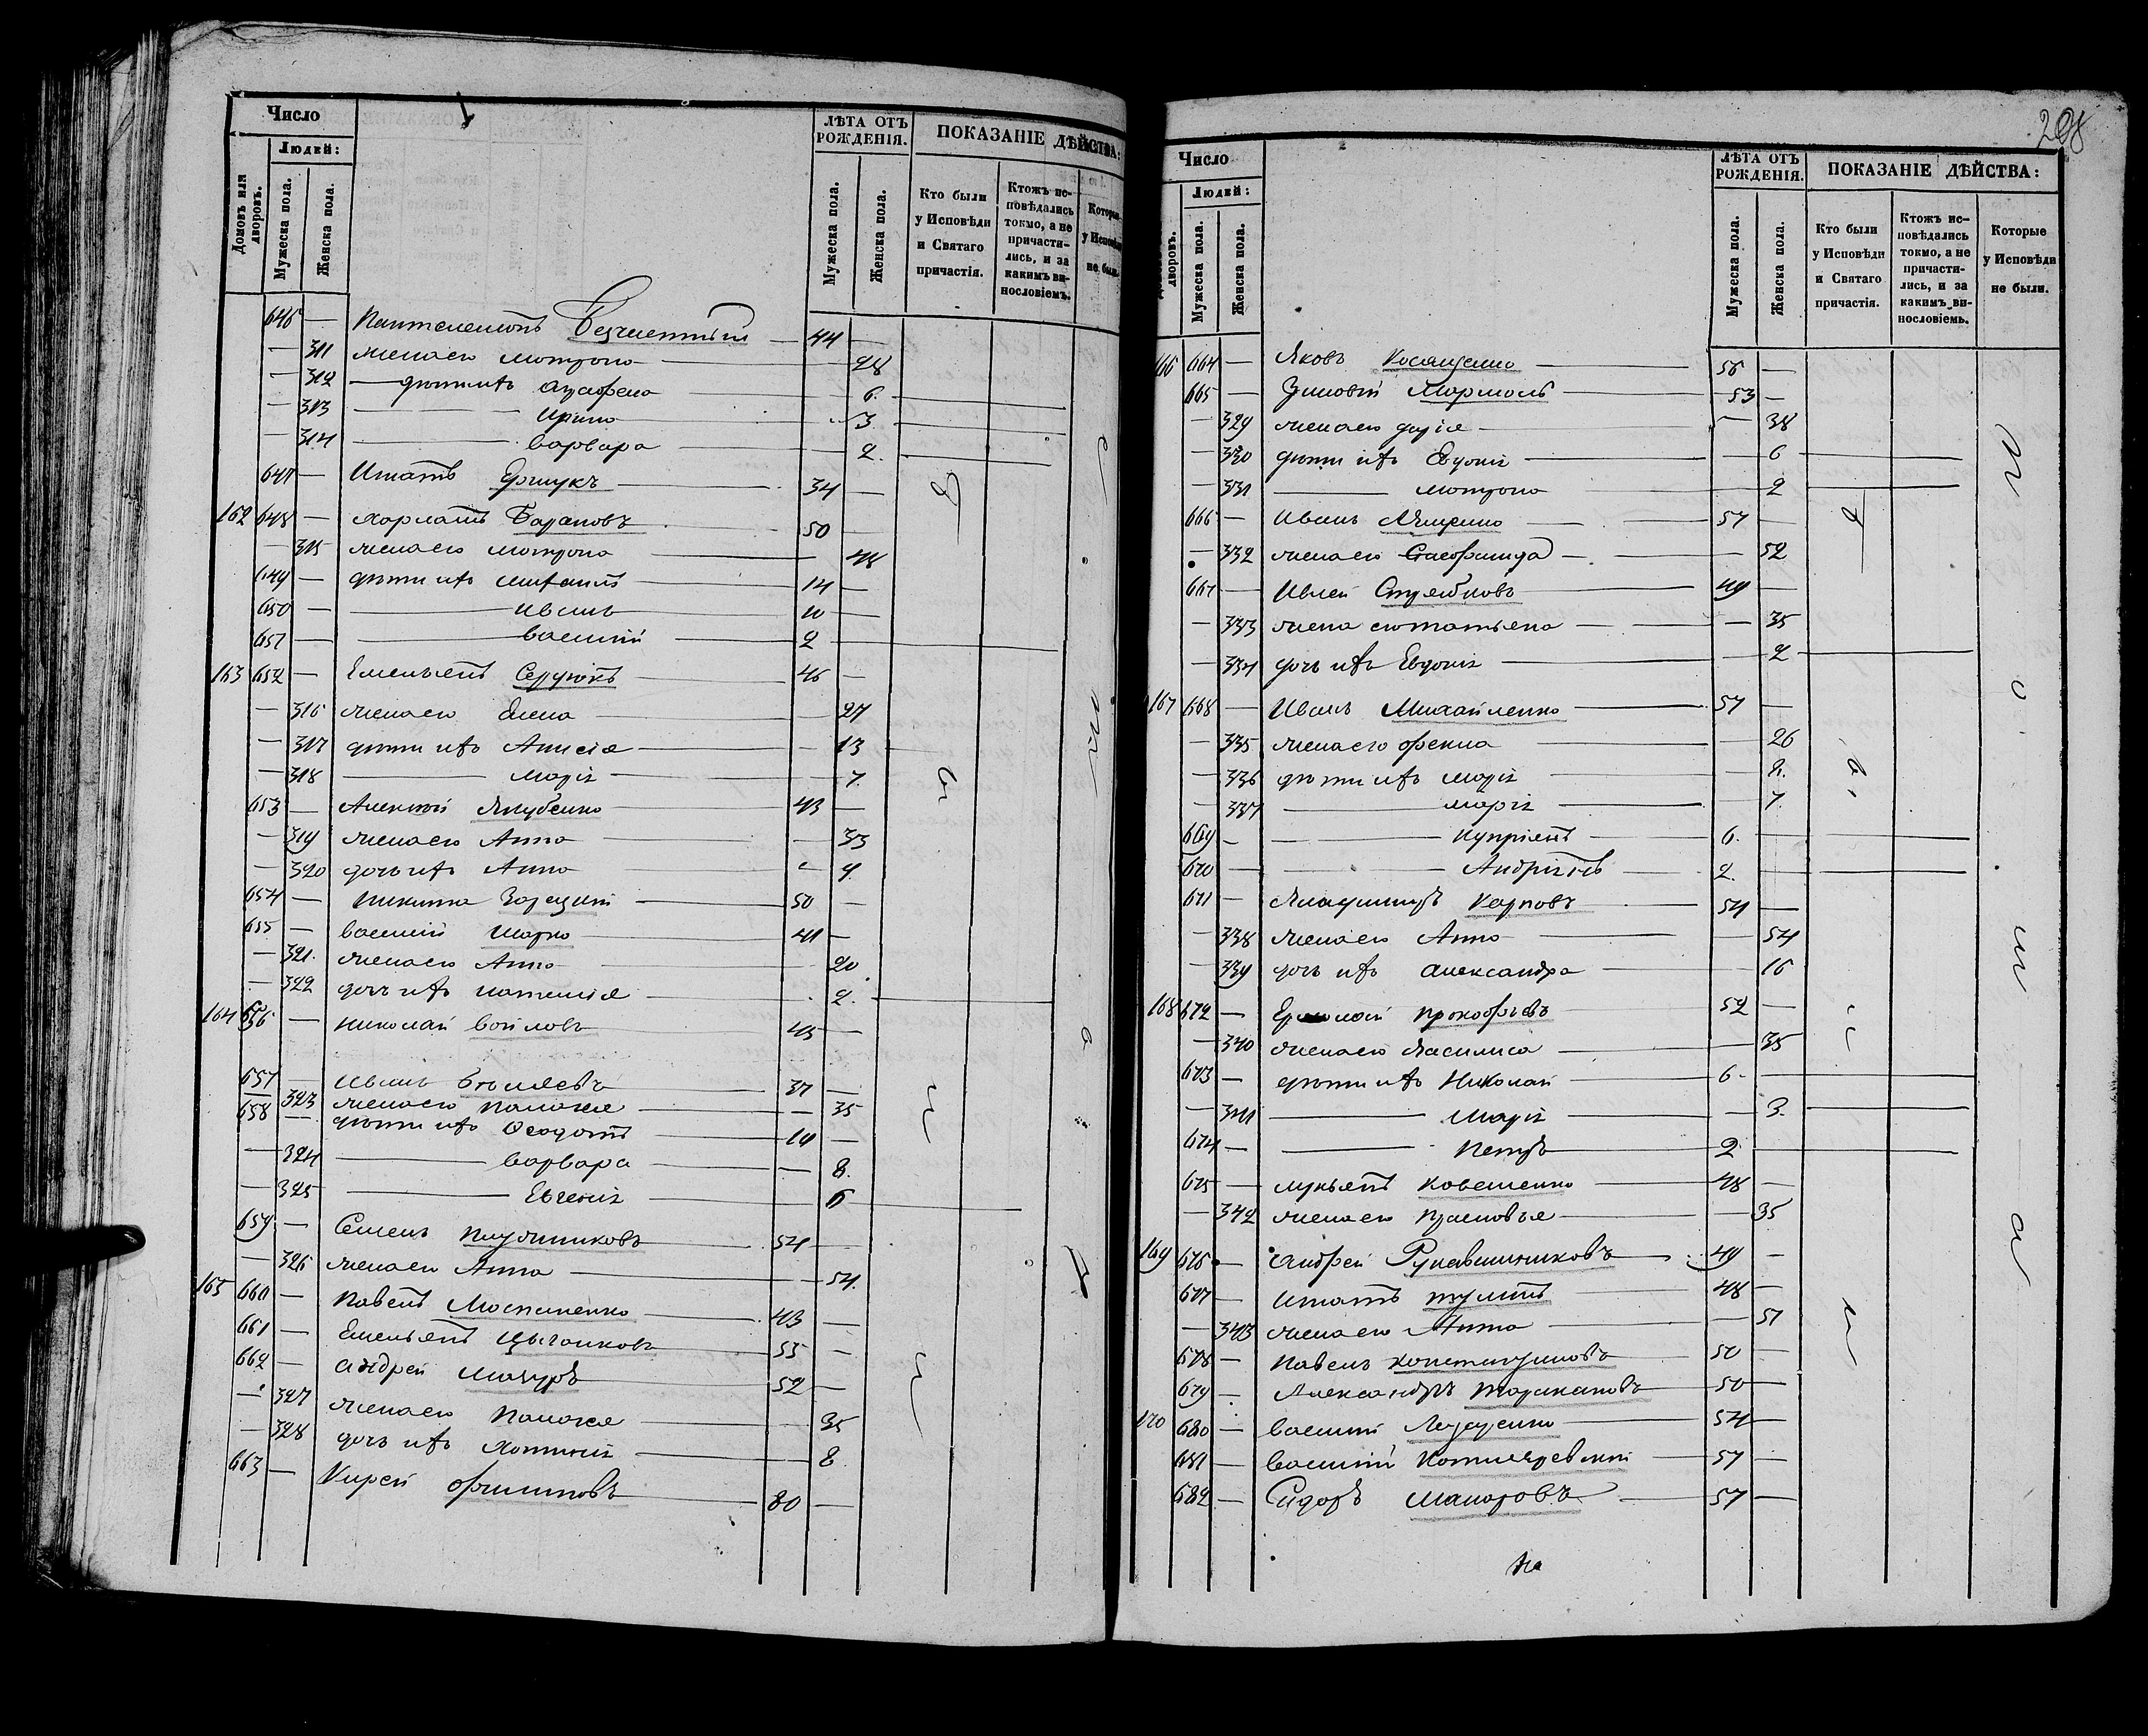 Число
Людей:
Домовъ или дворовъ.
Мужеска пола.
Женска пола.
ЛѢТА ОТЪ РОЖДЕНІЯ.
Мужеска пола.
Женска пола.
ПОКАЗАНІЕ ДѢЙСТВА:
Кто были у Исповѣди и Святаго причастія.
Ктожъ исповѣдались токмо, а не причастились, и за какимъ винословіемъ.
Которые у Исповѣди не были.
646 — 44 —
— 311 жена его Мотрона — 28
— 312 — дѣти ихъ Агафена — 6.
— 313 — Ирина — 3.
— 314 — Варвара — 2.
647 — Игнатъ 34 —
162 648 — Харлатъ Барановъ 50 —
— 315 жена его Мотрона — 48
649 — дѣти ихъ 14 —
650 — Иванъ 10 —
651 — Василій 2 —
163 652 — Емельянъ Сердюкъ 46 —
— 316 жена его Елена — 27
— 317 дѣти ихъ Анисія — 13
— 318 — Марія — 7.
653 — Алексѣй Якубенко 43 —
— 319 жена его Анна — 33
— 320 дочь ихъ Анна — 4.
654 — Никита Зарецкій 50 —
655 — Василій Шарко 41 —
— 321. жена его Анна — 20
— 322 дочь ихъ Наталія — 2.
164 656 — Николай Войловъ 45 —
657 — Иванъ 37 —
— 323 жена его Палажея — 35
658 — дѣти ихъ Феодотъ 14 —
— 324 — Варвара — 8.
— 325 — Евгенія — 6
659. — Семенъ Плотниковъ 54 —
— 326 жена его Анна — 54.
165 660 — Павелъ 43 —
661 — Емельянъ Цыганковъ 55 —
662 — Андрей Мазуръ 52 —
— 327 жена его Палажея — 35
— 328 дочь ихъ — 8.
663 — Кирей Филиповъ 80 —
208
Число
Людей:
дворовъ.
Мужеска пола.
Женска пола.
ЛѢТА ОТЪ РОЖДЕНІЯ.
Мужеска пола.
Женска пола.
ПОКАЗАНІЕ ДѢЙСТВА:
Кто были у Исповѣди и Святаго причастія.
Ктожъ исповѣдались токмо, а не причастились, и за какимъ винословіемъ.
Которые у Исповѣди не были.
166 664 — Яковъ Косященко 56 —
665 — Зиновій 53 —
— 329 жена его Дарія — 38
— 330 дѣти ихъ Евдокія — 6
— 331 — Мотрона — 2
666 — Иванъ 57 —
— 332 жена его Стефанида — 52
667 — 49 —
— 333 жена — 35
— 334 дочь ихъ Евдокія — 2
167 668 — Иванъ Михайленко 57 —
— 335 жена его Фекла — 26
— 336 дѣти ихъ Марія — 8.
— 337 — Марія — 7.
669 — Купріянъ 6. —
670 — Андріянъ 2. —
671 — Владимиръ Карповъ 54 —
— 338 жена его Анна — 54
— 339 дочь ихъ Александра — 16
168 672 — Ермолай Прокофьевъ 52 —
— 340 жена его Василиса — 35
673 — дѣти ихъ Николай 6. —
— 341 — Марія — 3.
674 — Петръ 2 —
675 — Лукьянъ Коваленко 48 —
— 342 жена его Прасковья — 35
169 676 — Андрей Рукавишниковъ 49 —
677 — Игнатъ 48 —
— 343 жена его Анна — 51
678 — Павелъ Константиновъ 50 —
679 — Александръ Тараканъ 50 —
170 680 — Василій Лазаренко 54 —
681 — Василій Котляревскій 57 —
682 — Сидоръ Макаровъ 57 —